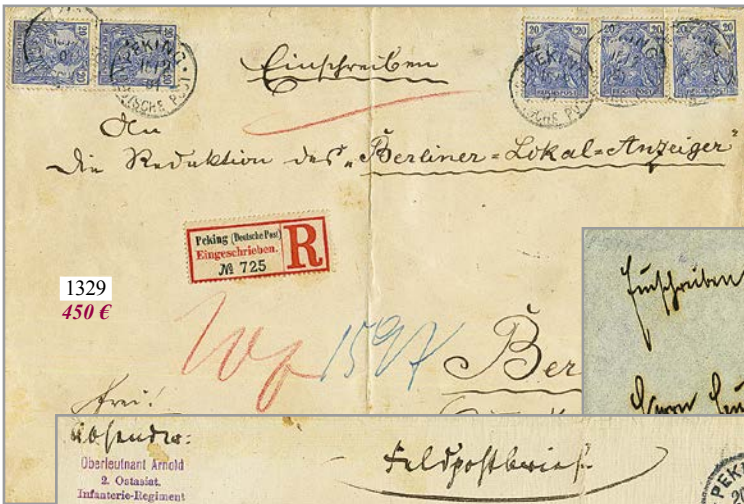 20 20 20 20 20
PEKING
DEUTSCHE POST
Einschreiben
An
die Redaktion des „Berliner-Lokal-Anzeiger"
Peking (Deutsche Post)
Eingeschrieben.
№ 725
R
1329
450 €
1597
Ber
frei!
Einschreiben
Herrn
Absender:
Oberleutnant Arnold
2. Ostasiat.
Infanterie-Regiment
Feldpostbrief
PEKIN